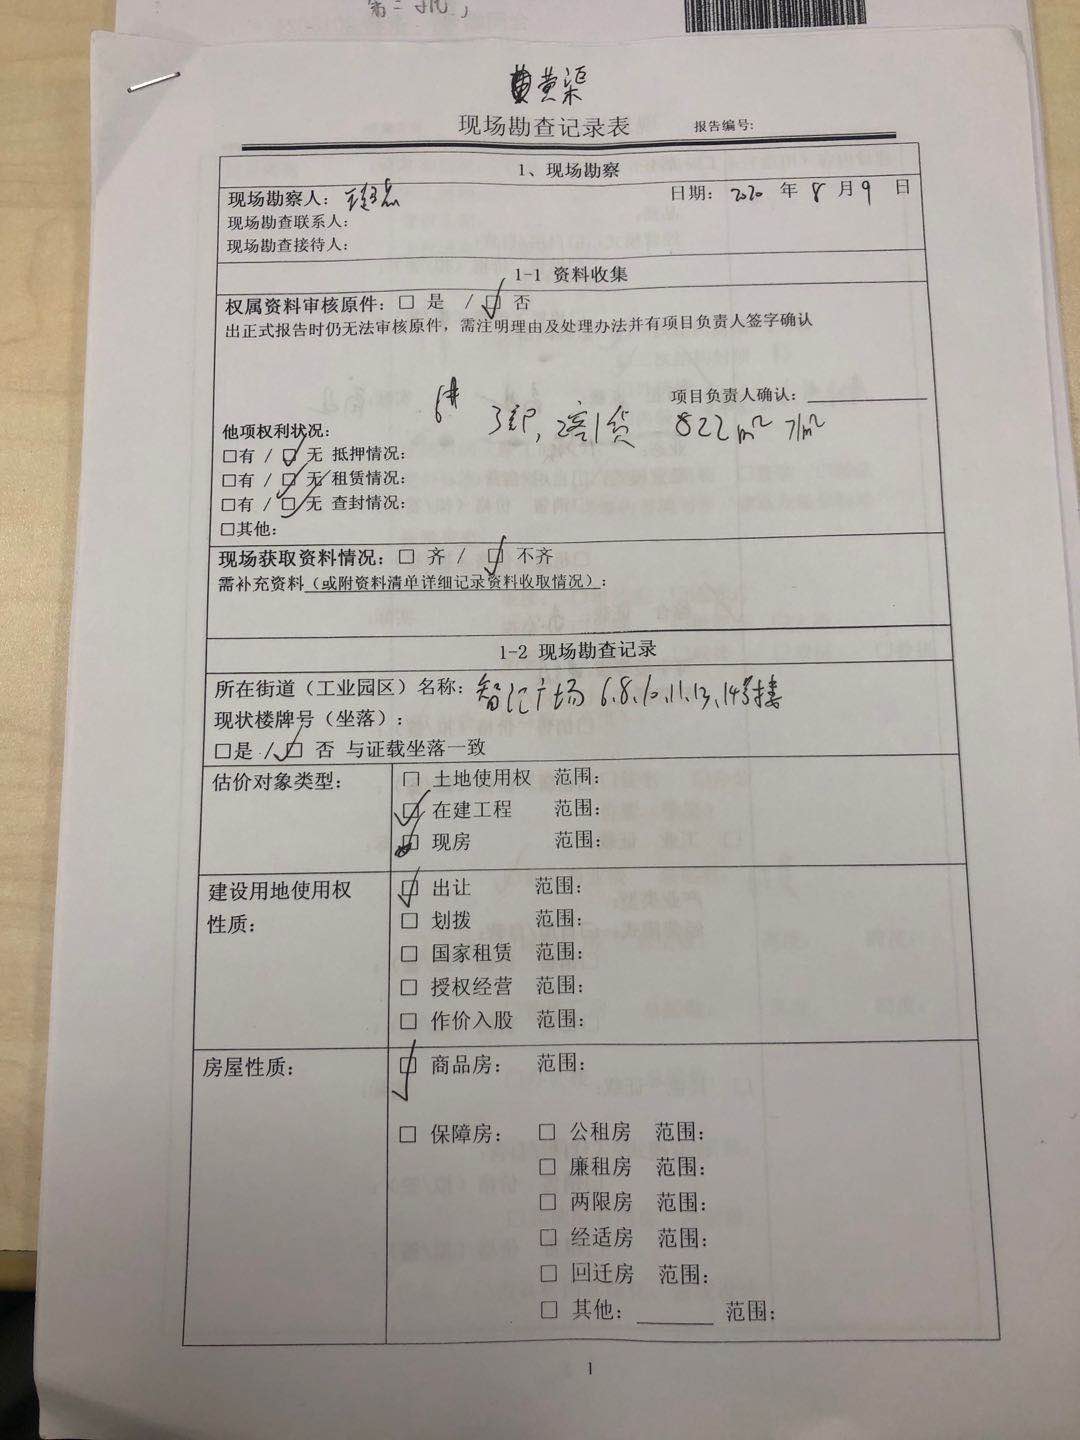 第二批,
黄渠
现场勘查记录表 报告编号:
1、现场勘察
现场勘察人: 日期: 2020 年 8 月 9 日
现场勘查联系人:
现场勘查接待人:
1-1 资料收集
权属资料审核原件: □ 是 / ☑ 否
出正式报告时仍无法审核原件, 需注明理由及处理办法并有项目负责人签字确认
项目负责人确认:
6# 3部, 2客1货 822m² 7/m²
他项权利状况:
□有 / ☑ 无 抵押情况:
□有 / ☑ 无 租赁情况:
□有 / ☑ 无 查封情况:
□其他:
现场获取资料情况: □ 齐 / ☑ 不齐
需补充资料(或附资料清单详细记录资料收取情况):
1-2 现场勘查记录
所在街道(工业园区)名称: 智汇广场 6.8.10.11.13.14号楼
现状楼牌号(坐落):
□是 / ☑ 否 与证载坐落一致
估价对象类型: □ 土地使用权 范围:
☑ 在建工程 范围:
☑ 现房 范围:
建设用地使用权
性质:
☑ 出让 范围:
□ 划拨 范围:
□ 国家租赁 范围:
□ 授权经营 范围:
□ 作价入股 范围:
房屋性质: ☑ 商品房: 范围:
□ 保障房: □ 公租房 范围:
□ 廉租房 范围:
□ 两限房 范围:
□ 经适房 范围:
□ 回迁房 范围:
□ 其他: 范围:
1